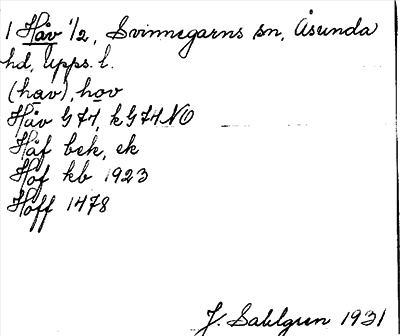 1 Håv 1/2, Svinnegarns sn, Åsunda
hd, Upps. l.
(hav), hov
Håv G74, kG74NO
Håf bek, ek
Hof kb 1923
Hoff 1478
J. Sahlgren 1931